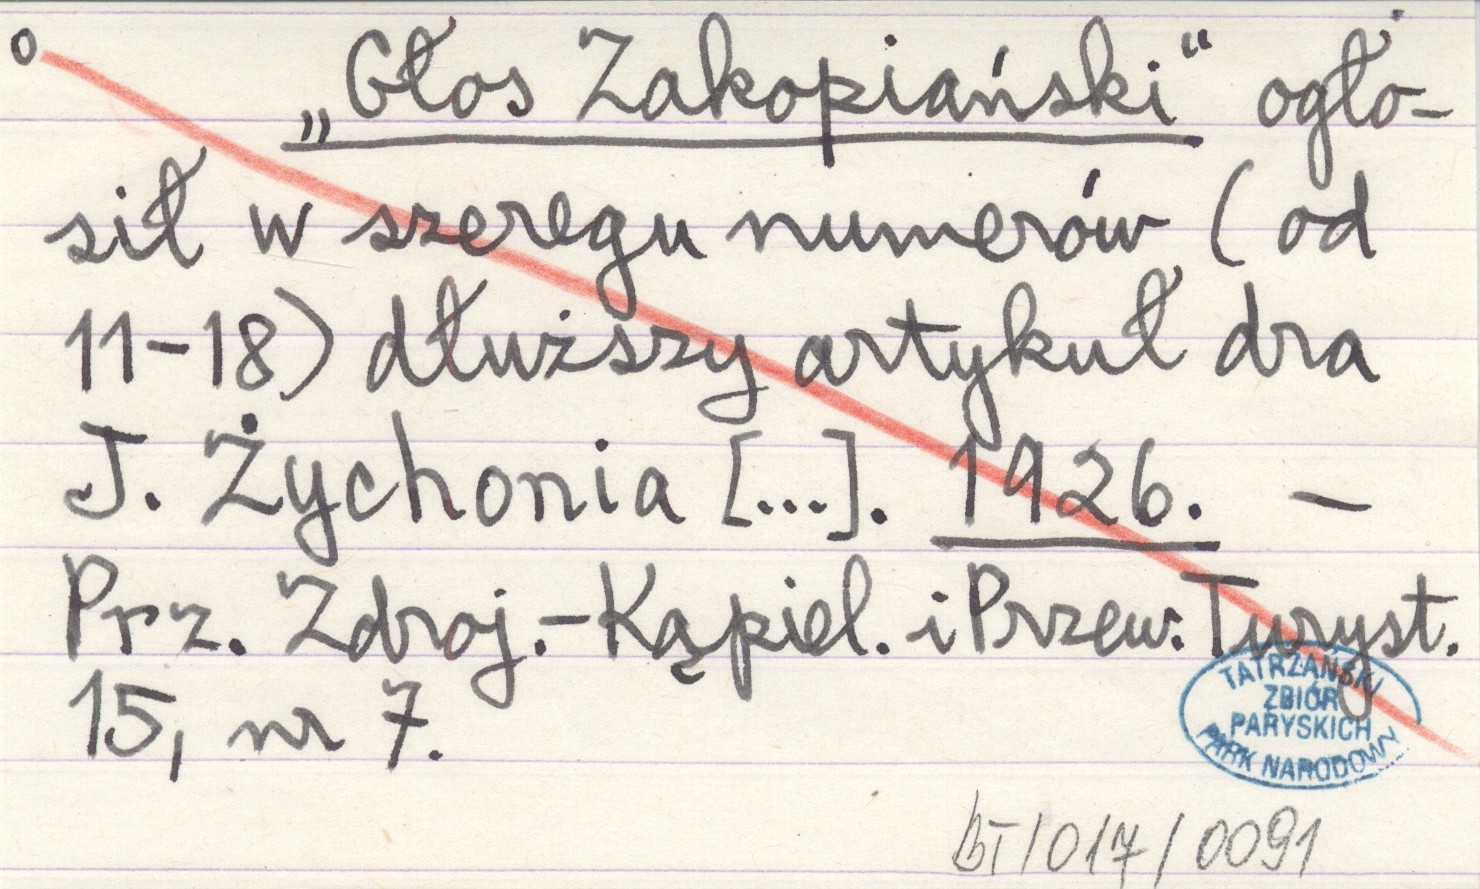 o „Głos Zakopiański" ogło-
sił w szeregu numerów (od
11-18) dłuższy artykuł dra
J. Żychonia [...]. 1926. —
Prz. Zdroj.-Kąpiel. i Przew. Turyst.
15, nr 7.
TATRZAŃSKI
ZBIÓR
PARYSKICH
PARK NARODOWY
BT/017/0091